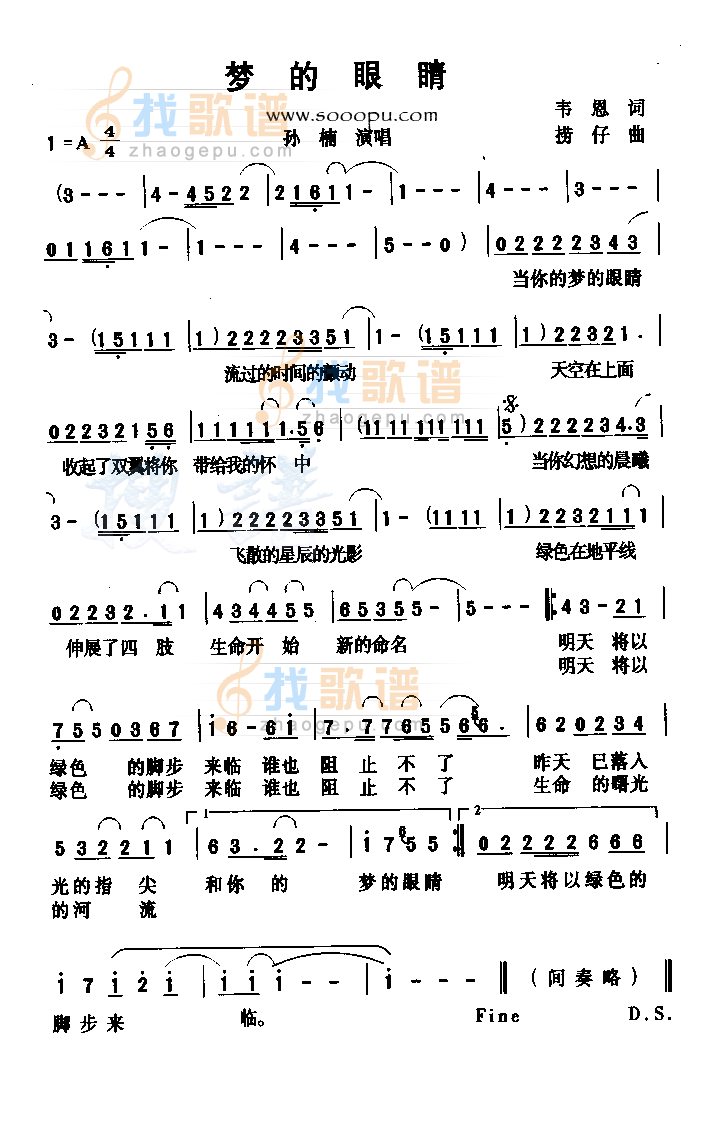 梦的眼睛
www.sooopu.com
韦恩词
1=A 4/4
孙楠 演唱
捞仔曲
找歌谱
zhaogepu.com
(3--- | 4-4522 | 21611- | 1--- | 4--- | 3---
011611- | 1--- | 4--- | 5--0) | 02222343
当你的梦的眼睛
3-(15111 | 1)22223351 | 1-(15111 | 1)22321.
流过的时间的颤动 天空在上面
02232156 | 111111.56 | (1111111111 | 5)222234.3
收起了双翼将你 带给我的怀中 当你幻想的晨曦
3-(15111 | 1)22223351 | 1-(1111 | 1)2232111
飞散的星辰的光影 绿色在地平线
02232.11 | 434455 | 65355- | 5--- |: 43-21
伸展了四肢 生命开始 新的命名 明天将以
明天将以
7550367 | i6-6i | 7.7765566. | 620234
绿色 的脚步 来临谁也 阻止不了 昨天 已落入
绿色 的脚步 来临谁也 阻止不了 生命 的曙光
1 2
532211 | 63.22- | i7655 :| 02222666
光的指尖 和你的 梦的眼睛 明天将以绿色的
的河流
i7i2i | iii-- | i--- || (间奏略) ||
脚步来 临。 Fine D.S.